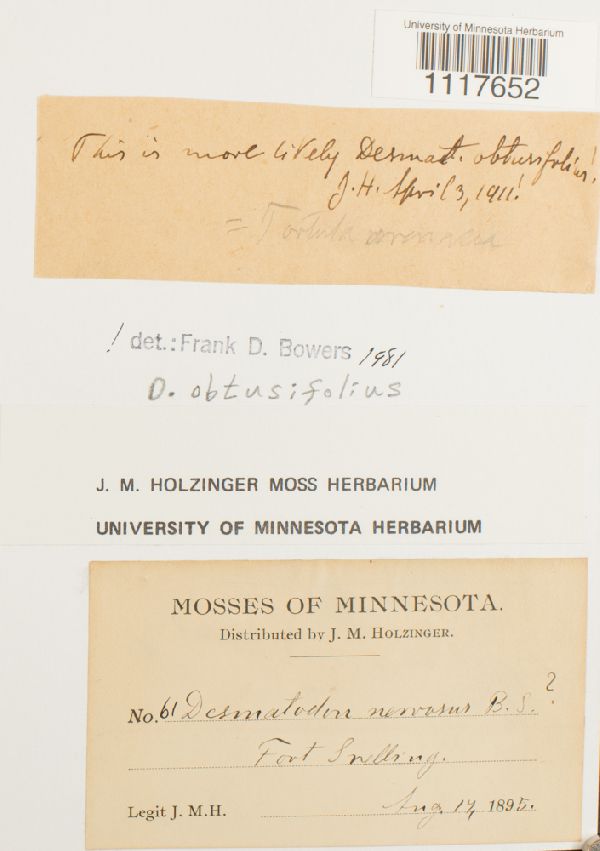 University of Minnesota Herbarium
1117652
This is more likely Desmat. obtusifolius!
J.H. April 3, 1911!
= Tortula arenacea
! det.: Frank D. Bowers 1981
D. obtusifolius
J. M. HOLZINGER MOSS HERBARIUM
UNIVERSITY OF MINNESOTA HERBARIUM
MOSSES OF MINNESOTA.
Distributed by J. M. HOLZINGER.
No. 61 Desmatodon nervosus B. S. ?
Fort Snelling.
Legit J. M. H. Aug. 17, 1895.